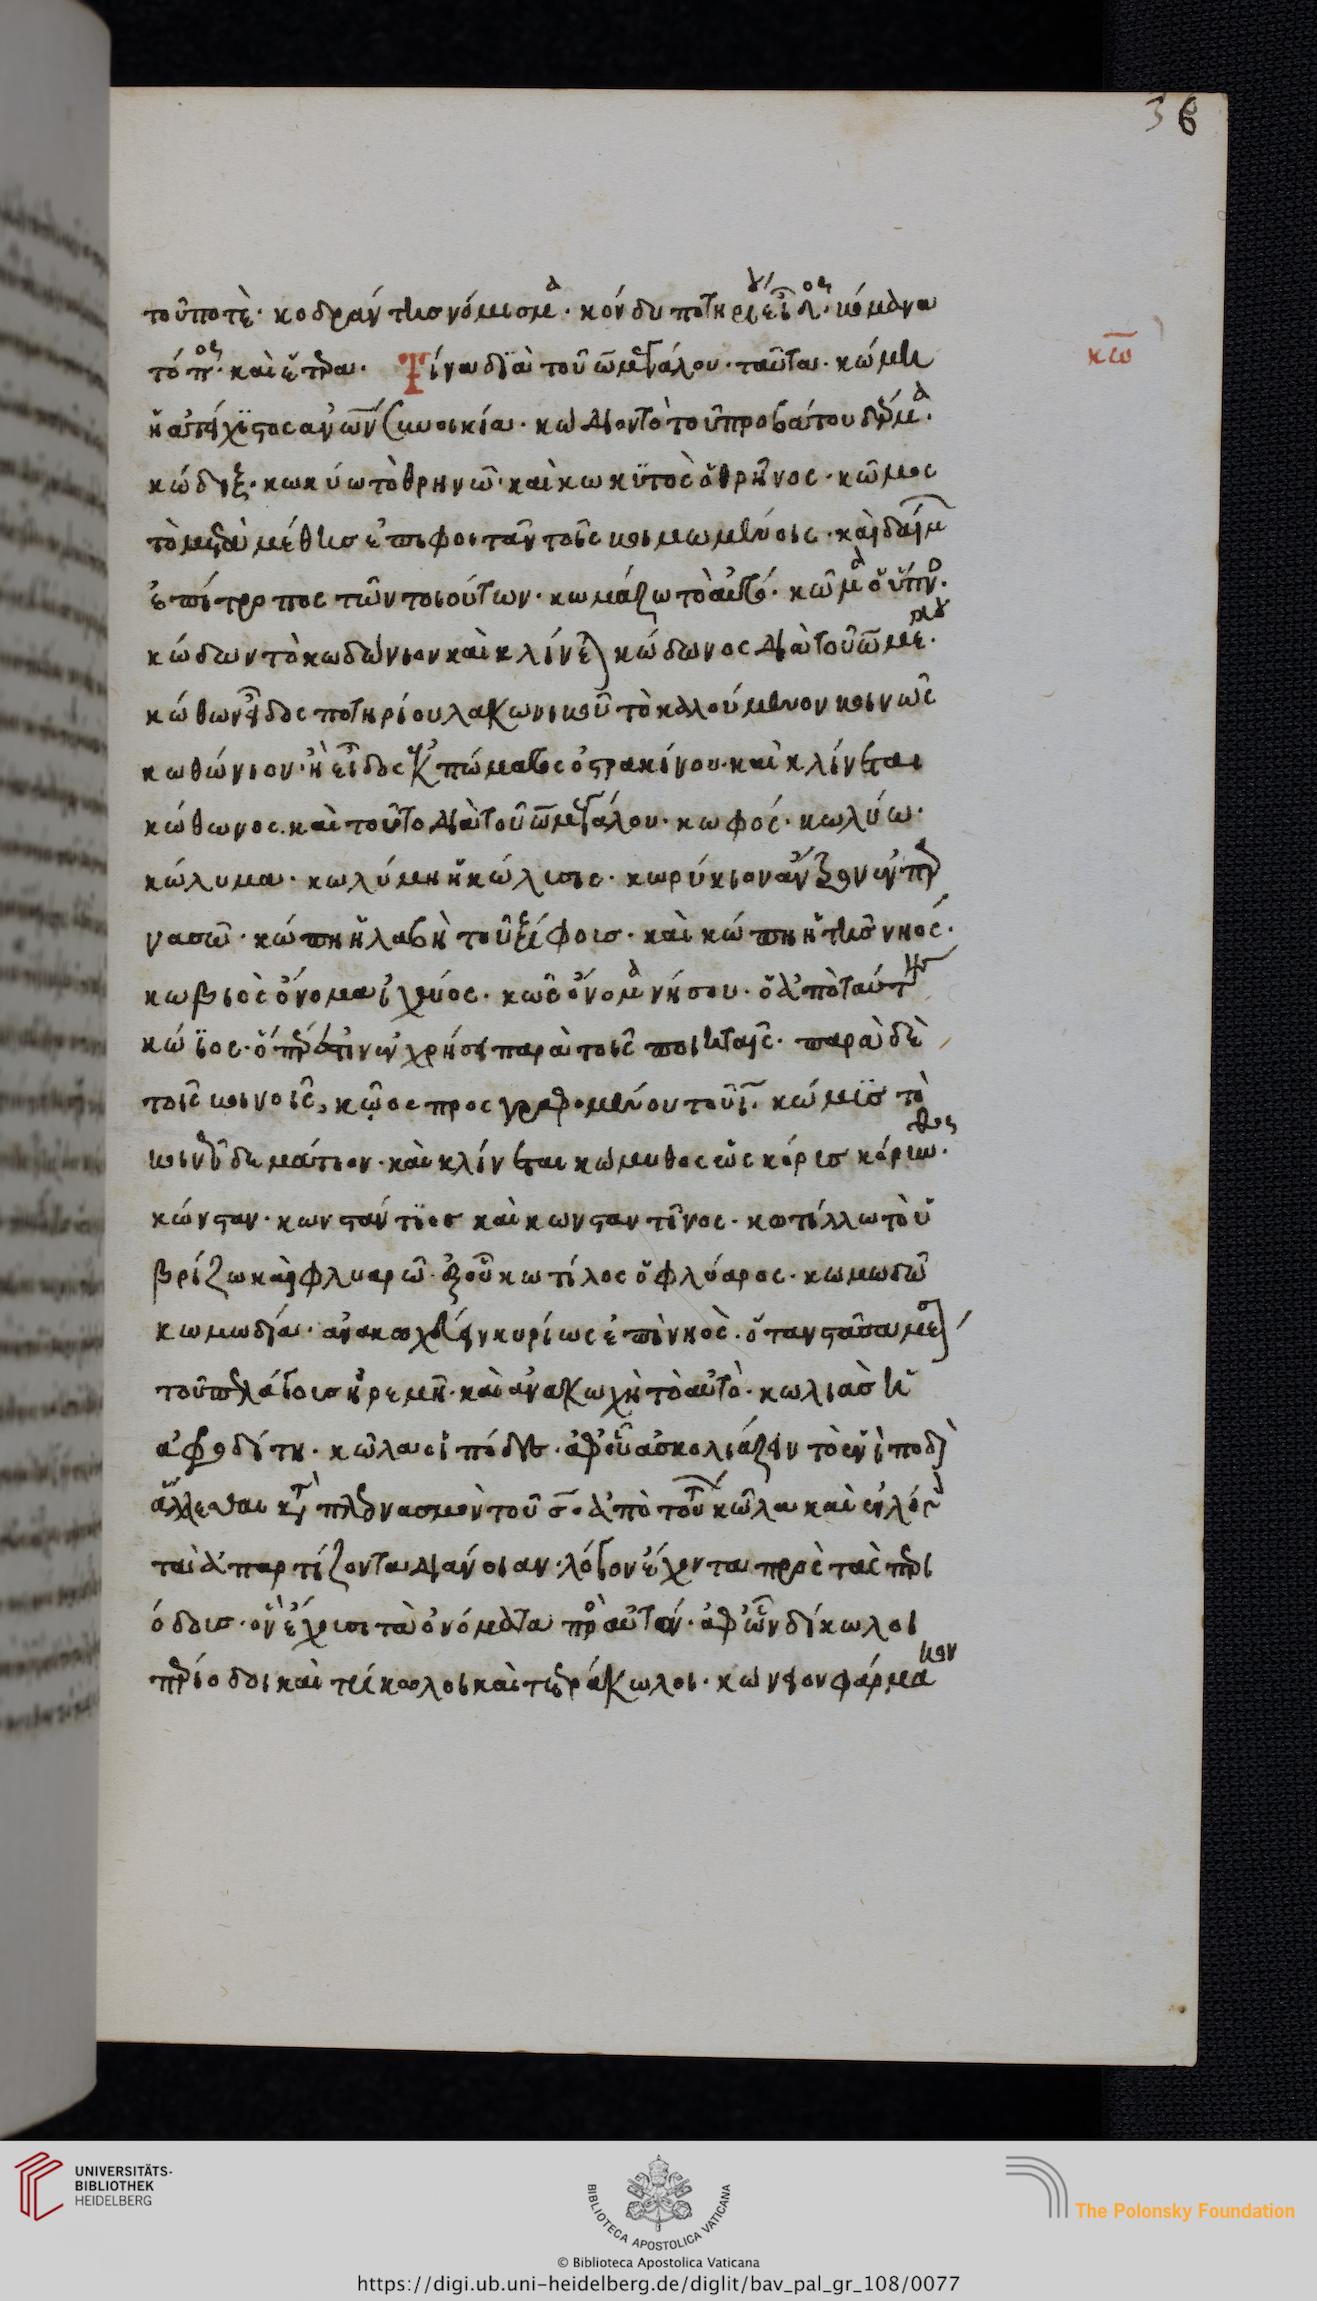 36
τοῦ ποτὲ· κοδράντης νόμισμα· κόνδυ ποτηρίου εἶδος· κόμανα
τόπος· καὶ ἕτερα· Τίνα διὰ τοῦ ω μεγάλου· ταῦτα· κώμη
κω
ἡ ἀτείχιστος ἀνθρώπων συνοικία· κώδιον τὸ τοῦ προβάτου δέρμα·
κώδιξ· κωκύω τὸ θρηνῶ· καὶ κωκυτὸς ὁ θρῆνος· κῶμος
τὸ μετὰ μέθης ἐπιφοιτᾶν τοῖς κοιμωμένοις· καὶ δαίμων
ἐπίτροπος τῶν τοιούτων· κωμάζω τὸ αὐτό· κῶμα ὁ ὕπνος·
κώδων τὸ κωδώνιον καὶ κλίνεται κώδωνος διὰ τοῦ ω μεγάλου·
κώθων εἶδος ποτηρίου λακωνικοῦ τὸ καλούμενον κοινῶς
κωθώνιον· ἢ εἶδος ἐκπώματος ὀστρακίνου· καὶ κλίνεται
κώθωνος· καὶ τοῦτο διὰ τοῦ ω μεγάλου· κωφός· κωλύω·
κώλυμα· κωλύμη ἡ κώλυσις· κωρύκιον
κώπη ἡ λαβὴ τοῦ ξίφους· καὶ κώπη ἡ τῆς νηός·
κωβιὸς ὄνομα ἰχθύος· κῶς ὄνομα νήσου· ὁ ἀπὸ ταύτης
κώϊος· παρὰ τοῖς ποιηταῖς· παρὰ δὲ
τοῖς κοινοῖς, κῷος προσγραφομένου τοῦ ι· κώμυς τὸ
δεμάτιον· καὶ κλίνεται κώμυθος ὡς κόρυς κόρυθος·
κώνσταν· κωνστάντιος καὶ κωνσταντῖνος· κωτίλλω τὸ ὑ
βρίζω καὶ φλυαρῶ· ἐξ οὗ κωτίλος ὁ φλύαρος· κωμωδῶ
κωμωδία· ἀνακωχεύειν κυρίως ἐπὶ νηὸς· ὅταν στᾶσα μέσον
τοῦ πελάγους ἠρεμῇ· καὶ ἀνακωχὴ τὸ αὐτὸ· κωλιὰς ἡ
ἀφροδίτη· κῶλα οἱ πόδες· ἀφ' οὗ ἀσκωλιάζειν τὸ ἑνὶ ποδὶ
ἅλλεσθαι κατὰ πλεονασμὸν τοῦ σ· ἀπὸ τοῦ κῶλα καὶ ἐν λόγω
τὰ ἀπαρτίζοντα διάνοιαν· λόγον ἔχοντα πρὸς τὰς περι
όδους· ὃν ἔχουσι τὰ ὀνόματα πρὸς αὐτάς· ἀφ' ὧν δίκωλοι
περίοδοι καὶ τρίκωλοι καὶ τετράκωλοι· κώνειον φάρμακον
UNIVERSITÄTS-
BIBLIOTHEK
HEIDELBERG
BIBLIOTECA APOSTOLICA VATICANA
The Polonsky Foundation
© Biblioteca Apostolica Vaticana
https://digi.ub.uni-heidelberg.de/diglit/bav_pal_gr_108/0077